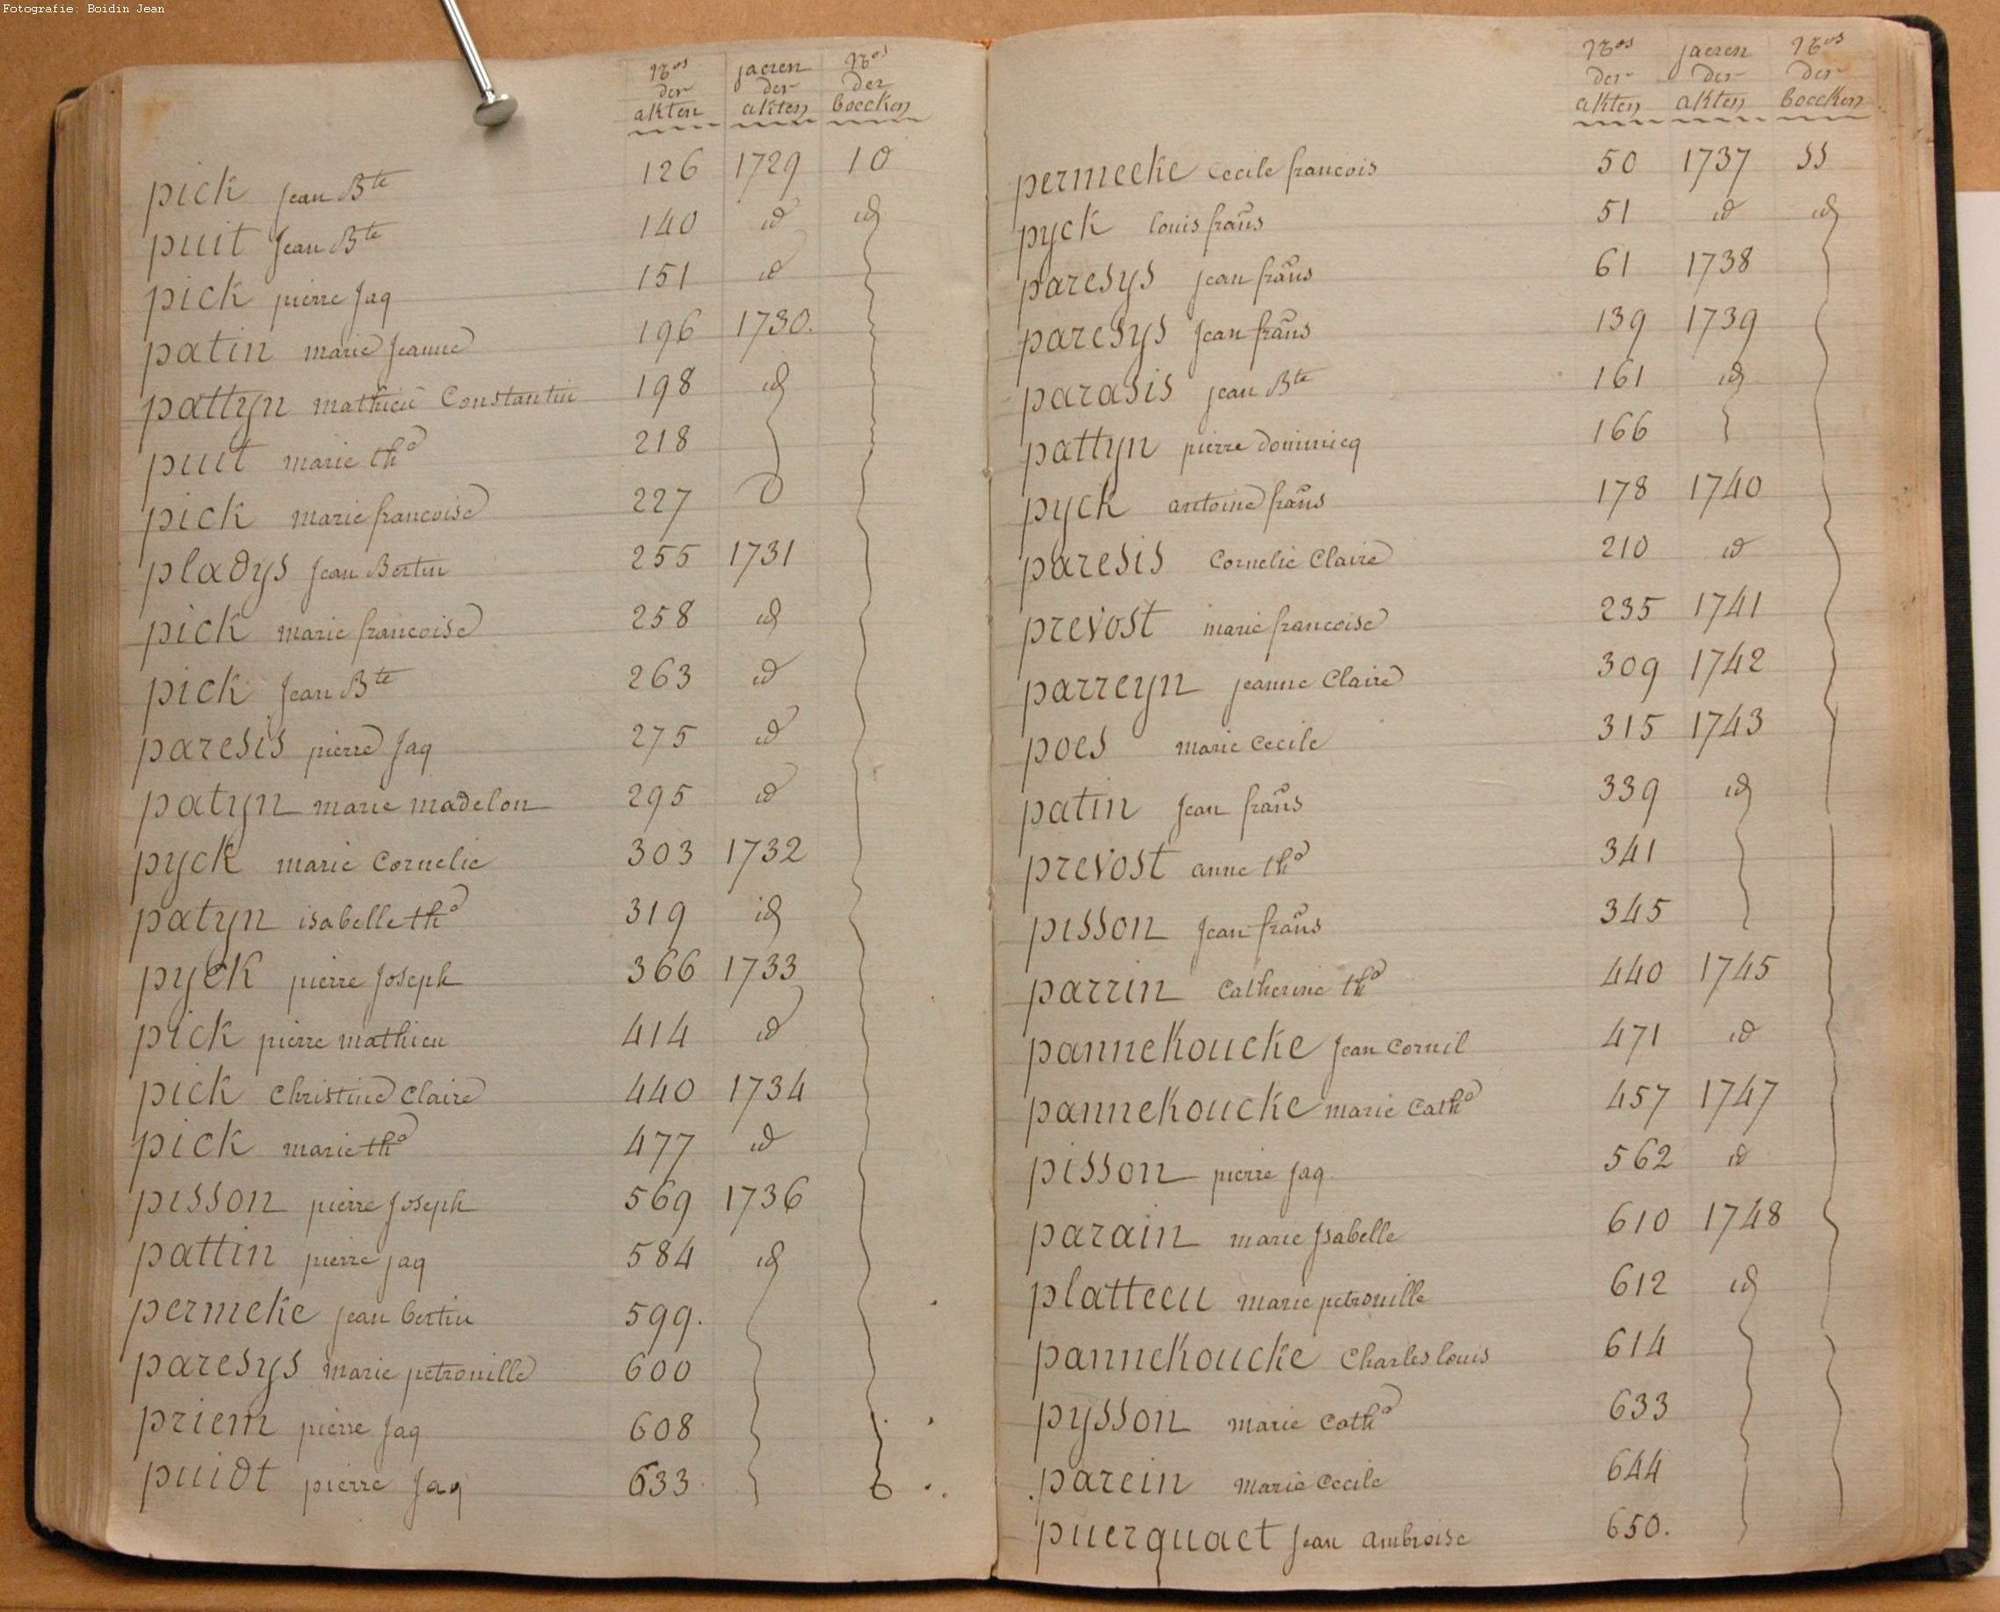 Fotografie: Boidin Jean
Nos der akten jaeren der akten Nos der boecken
pick Jean Bte 126 1729 10
puit Jean Bte 140 id id
pick pierre Jaq 151 id
patin marie Jeanne 196 1730.
pattyn mathieu Constantin 198 id
puit marie tho 218
pick marie francoise 227
pladys Jean Bertin 255 1731
pick marie francoise 258 id
pick Jean Bte 263 id
paresis pierre Jaq 275 id
patyn marie madelon 295 id
pyck marie Cornelie 303 1732
patyn isabelle tho 319 id
pyck pierre Joseph 366 1733
pick pierre mathieu 414 id
pick Christine Claire 440 1734
pick marie tho 477 id
pisson pierre Joseph 569 1736
pattin pierre jaq 584 id
permeke jean bertin 599.
paresys marie petronille 600
priem pierre Jaq 608
puidt pierre Jaq 633
Nos der akten jaeren der akten Nos der boecken
permeeke Cecile francois 50 1737
pyck louis frans 51 id id
paresys jean frans 61 1738
paresys Jean frans 139 1739
parasis jean Bte 161 id
pattyn pierre dominicq 166
pyck antoine frans 178 1740
paresis Cornelie Claire 210 id
prevost marie francoise 235 1741
parreyn jeanne Claire 309 1742
poes marie Cecile 315 1743
patin Jean frans 339 id
prevost anne tho 341
pisson Jean frans 345
parrin Catherine tho 440 1745
pannekoucke Jean Cornil 471 id
pannekoucke marie Catho 457 1747
pisson pierre Jaq 562 id
parain marie Isabelle 610 1748
platteeu marie petronille 612 id
pannekoucke Charles louis 614
pysson marie Catho 633
parein Marie Cecile 644
puerquaet Jean Ambroise 650.